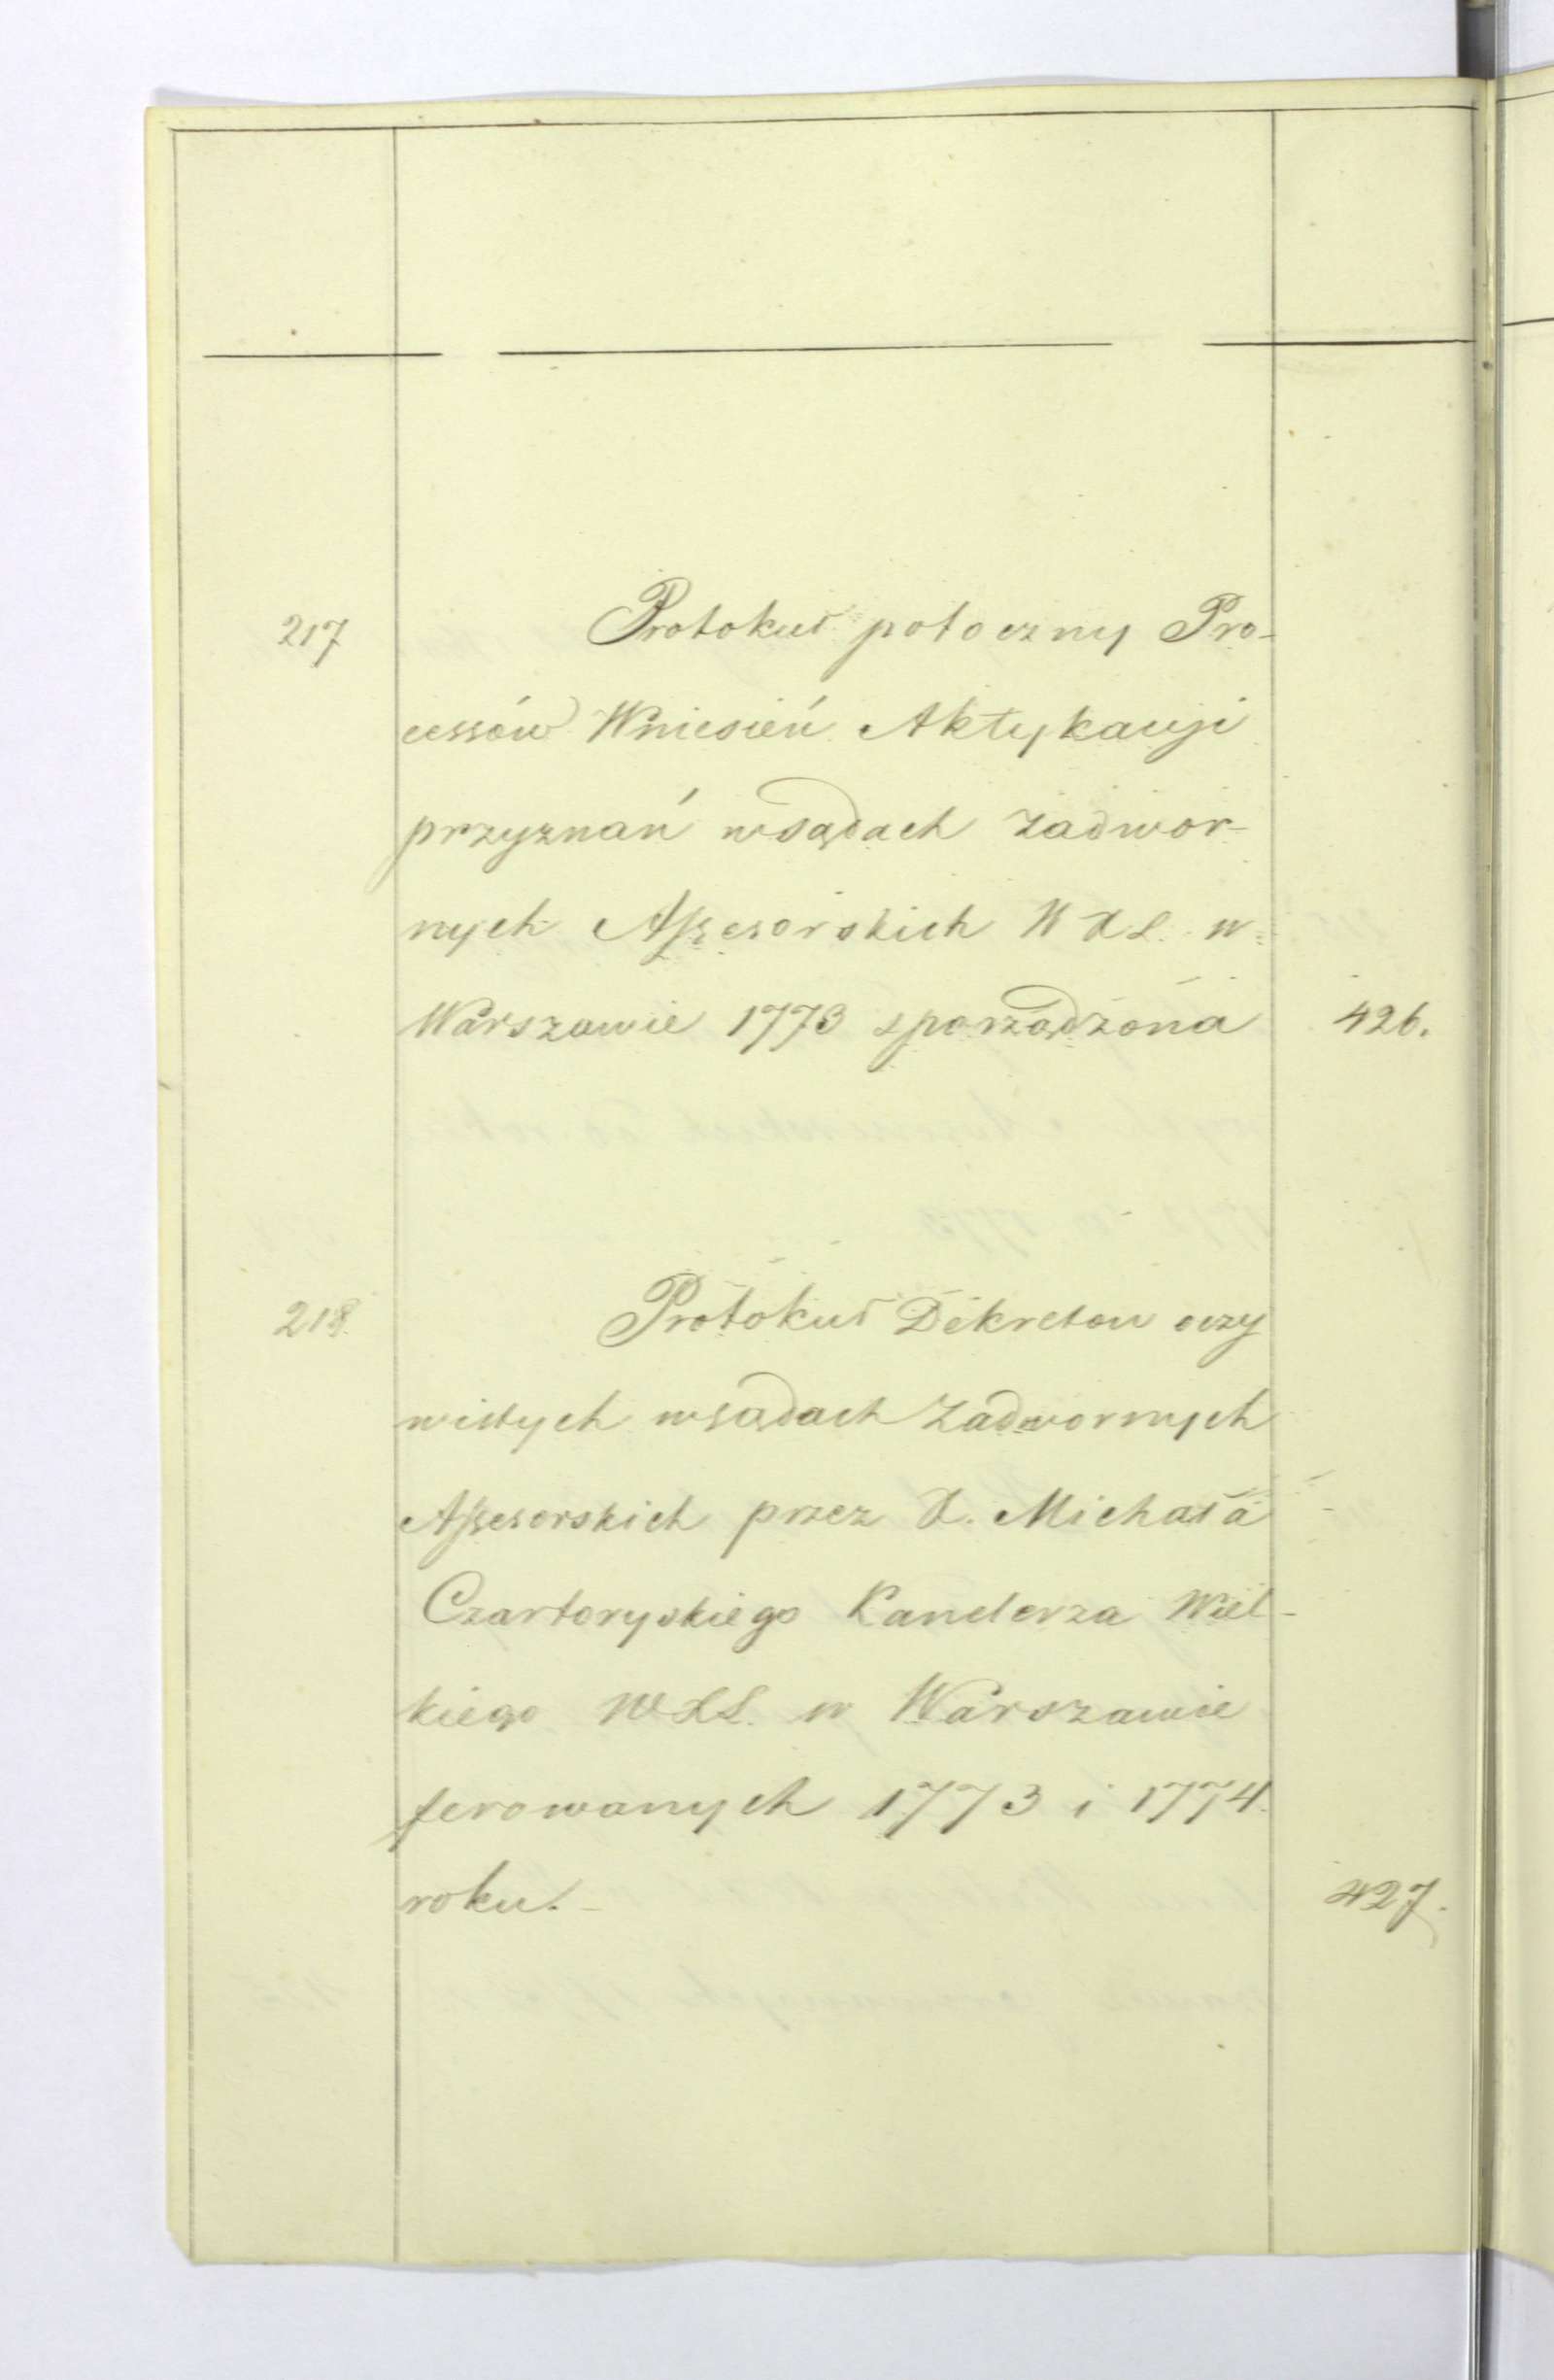 217 Protokuł potoczny Pro-
cessów Wniesień Aktykacyi
przyznań wsądach zadwor-
nych Assesorskich W X L. w
Warszawie 1773 sporządzona 426.
218. Protokuł Dekretow oczy
wistych wsądach Zadwornych
Assesorskich przez X. Michała
Czartoryskiego Kanclerza Wiel-
kiego W X L. w Warszawie
ferowanych 1773 i 1774.
roku. 427.